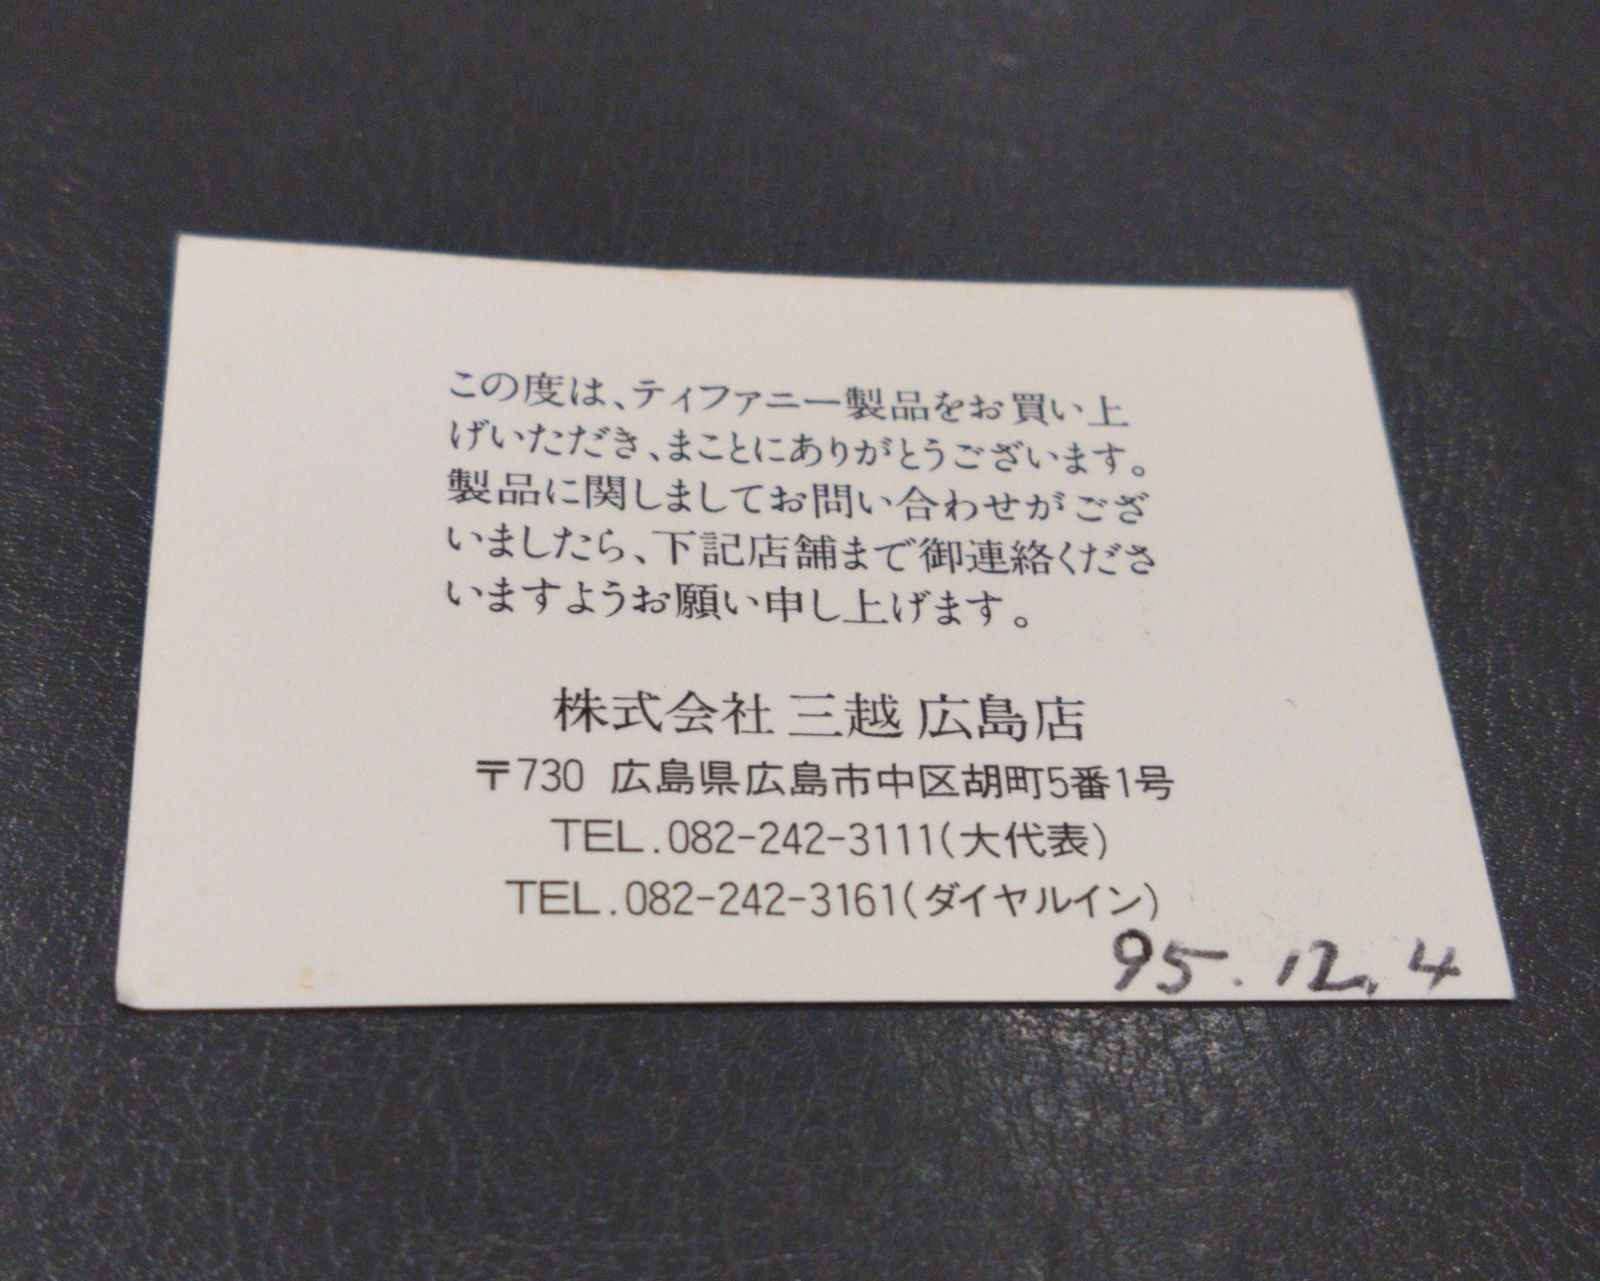 この度は、ティファニー製品をお買い上
げいただき、まことにありがとうございます。
製品に関しましてお問い合わせがござ
いましたら、下記店舗まで御連絡くださ
いますようお願い申し上げます。
株式会社 三越 広島店
〒730 広島県広島市中区胡町5番1号
TEL.082-242-3111(大代表)
TEL.082-242-3161(ダイヤルイン)
95.12.4